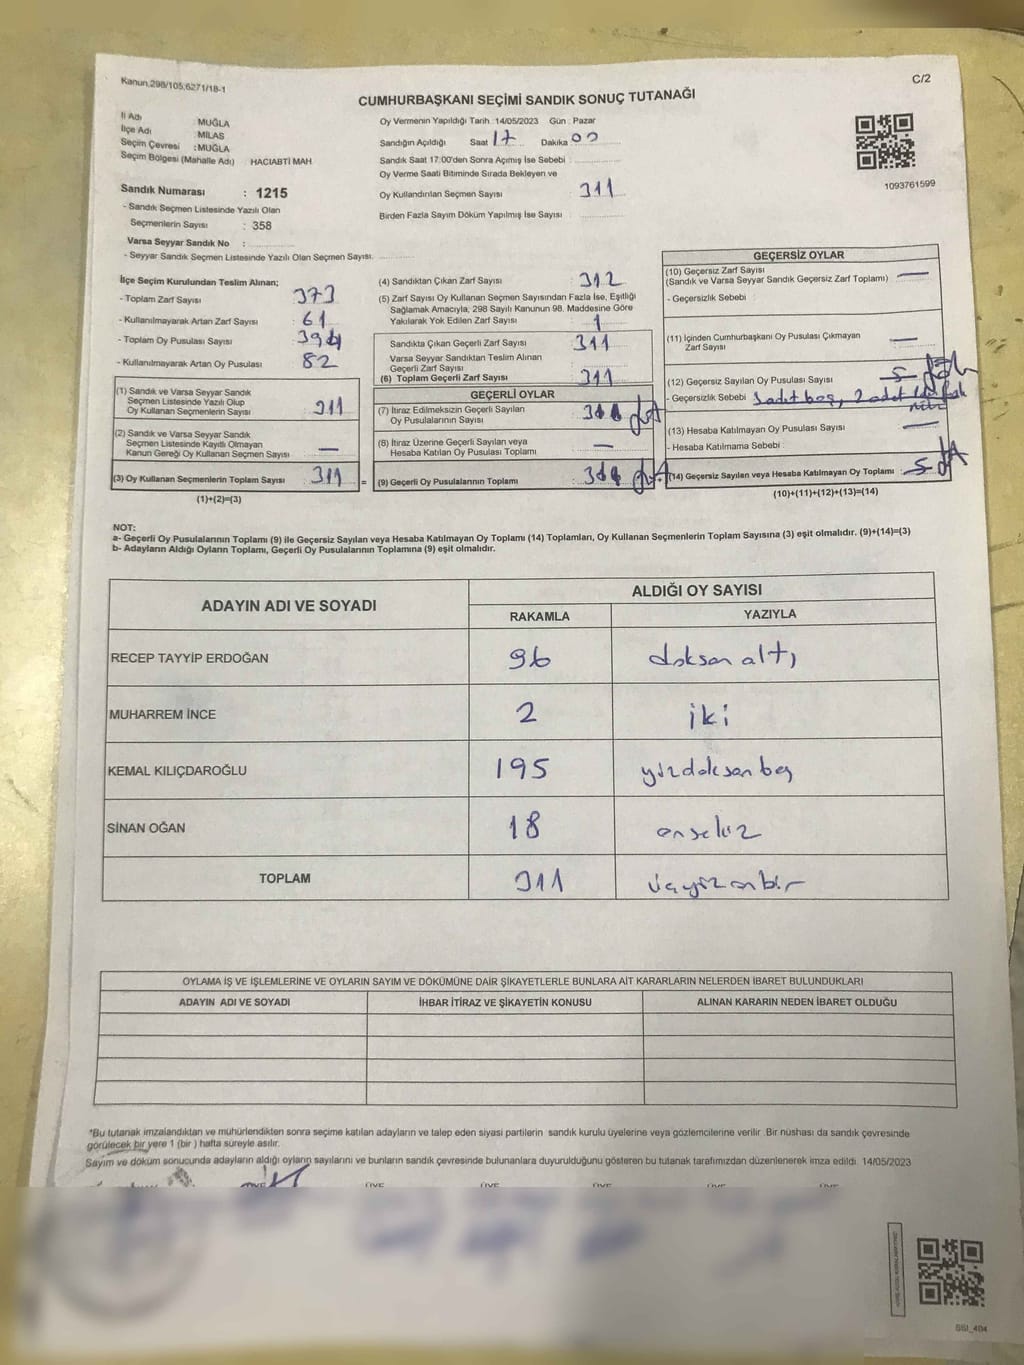 Kanun.298/105,6271/18-1
C/2
CUMHURBAŞKANI SEÇİMİ SANDIK SONUÇ TUTANAĞI
İl Adı : MUĞLA
İlçe Adı : MİLAS
Seçim Çevresi : MUĞLA
Seçim Bölgesi (Mahalle Adı) HACIABTİ MAH
Sandık Numarası : 1215
- Sandık Seçmen Listesinde Yazılı Olan
Seçmenlerin Sayısı : 358
Varsa Seyyar Sandık No :
- Seyyar Sandık Seçmen Listesinde Yazılı Olan Seçmen Sayısı:
Oy Vermenin Yapıldığı Tarih :14/05/2023 Gün : Pazar
Sandığın Açıldığı Saat 17 Dakika 00
Sandık Saat 17:00'den Sonra Açımış İse Sebebi :
Oy Verme Saati Bitiminde Sırada Bekleyen ve
Oy Kullandırılan Seçmen Sayısı : 311
Birden Fazla Sayım Döküm Yapılmış İse Sayısı :
1093761599
İlçe Seçim Kurulundan Teslim Alınan;
- Toplam Zarf Sayısı : 373
- Kullanılmayarak Artan Zarf Sayısı : 61
- Toplam Oy Pusulası Sayısı
- Kullanılmayarak Artan Oy Pusulası : 82
(1) Sandık ve Varsa Seyyar Sandık
Seçmen Listesinde Yazılı Olup
Oy Kullanan Seçmenlerin Sayısı : 311
(2) Sandık ve Varsa Seyyar Sandık
Seçmen Listesinde Kayıtlı Olmayan
Kanun Gereği Oy Kullanan Seçmen Sayısı : —
(3) Oy Kullanan Seçmenlerin Toplam Sayısı : 311 =
(1)+(2)=(3)
(4) Sandıktan Çıkan Zarf Sayısı : 312
(5) Zarf Sayısı Oy Kullanan Seçmen Sayısından Fazla İse, Eşitliği
Sağlamak Amacıyla, 298 Sayılı Kanunun 98. Maddesine Göre
Yakılarak Yok Edilen Zarf Sayısı : 1
Sandıkta Çıkan Geçerli Zarf Sayısı : 311
Varsa Seyyar Sandıktan Teslim Alınan
Geçerli Zarf Sayısı :
(6) Toplam Geçerli Zarf Sayısı : 311
GEÇERLİ OYLAR
(7) İtiraz Edilmeksizin Geçerli Sayılan
Oy Pusulalarının Sayısı
(8) İtiraz Üzerine Geçerli Sayılan veya
Hesaba Katılan Oy Pusulası Toplamı : —
(9) Geçerli Oy Pusulalarının Toplamı
GEÇERSİZ OYLAR
(10) Geçersiz Zarf Sayısı : —
(Sandık ve Varsa Seyyar Sandık Geçersiz Zarf Toplamı)
- Geçersizlik Sebebi :
(11) İçinden Cumhurbaşkanı Oy Pusulası Çıkmayan
Zarf Sayısı : —
(12) Geçersiz Sayılan Oy Pusulası Sayısı : 5
- Geçersizlik Sebebi : 3 adet boş, 2 adet
(13) Hesaba Katılmayan Oy Pusulası Sayısı : —
- Hesaba Katılmama Sebebi :
(14) Geçersiz Sayılan veya Hesaba Katılmayan Oy Toplamı : 5
(10)+(11)+(12)+(13)=(14)
NOT:
a- Geçerli Oy Pusulalarının Toplamı (9) ile Geçersiz Sayılan veya Hesaba Katılmayan Oy Toplamı (14) Toplamları, Oy Kullanan Seçmenlerin Toplam Sayısına (3) eşit olmalıdır. (9)+(14)=(3)
b- Adayların Aldığı Oyların Toplamı, Geçerli Oy Pusulalarının Toplamına (9) eşit olmalıdır.
ADAYIN ADI VE SOYADI ALDIĞI OY SAYISI
RAKAMLA YAZIYLA
RECEP TAYYİP ERDOĞAN 96 doksan altı
MUHARREM İNCE 2 iki
KEMAL KILIÇDAROĞLU 195 yüzdoksan beş
SİNAN OĞAN 18 onsekiz
TOPLAM 311 üçyüz onbir
OYLAMA İŞ VE İŞLEMLERİNE VE OYLARIN SAYIM VE DÖKÜMÜNE DAİR ŞİKAYETLERLE BUNLARA AİT KARARLARIN NELERDEN İBARET BULUNDUKLARI
ADAYIN ADI VE SOYADI İHBAR İTİRAZ VE ŞİKAYETİN KONUSU ALINAN KARARIN NEDEN İBARET OLDUĞU
*Bu tutanak imzalandıktan ve mühürlendikten sonra seçime katılan adayların ve talep eden siyasi partilerin sandık kurulu üyelerine veya gözlemcilerine verilir .Bir nüshası da sandık çevresinde
görülecek bir yere 1 (bir ) hafta süreyle asılır.
Sayım ve döküm sonucunda adayların aldığı oyların sayılarını ve bunların sandık çevresinde bulunanlara duyurulduğunu gösteren bu tutanak tarafımızdan düzenlenerek imza edildi. 14/05/2023
ÜYE ÜYE ÜYE ÜYE ÜYE ÜYE